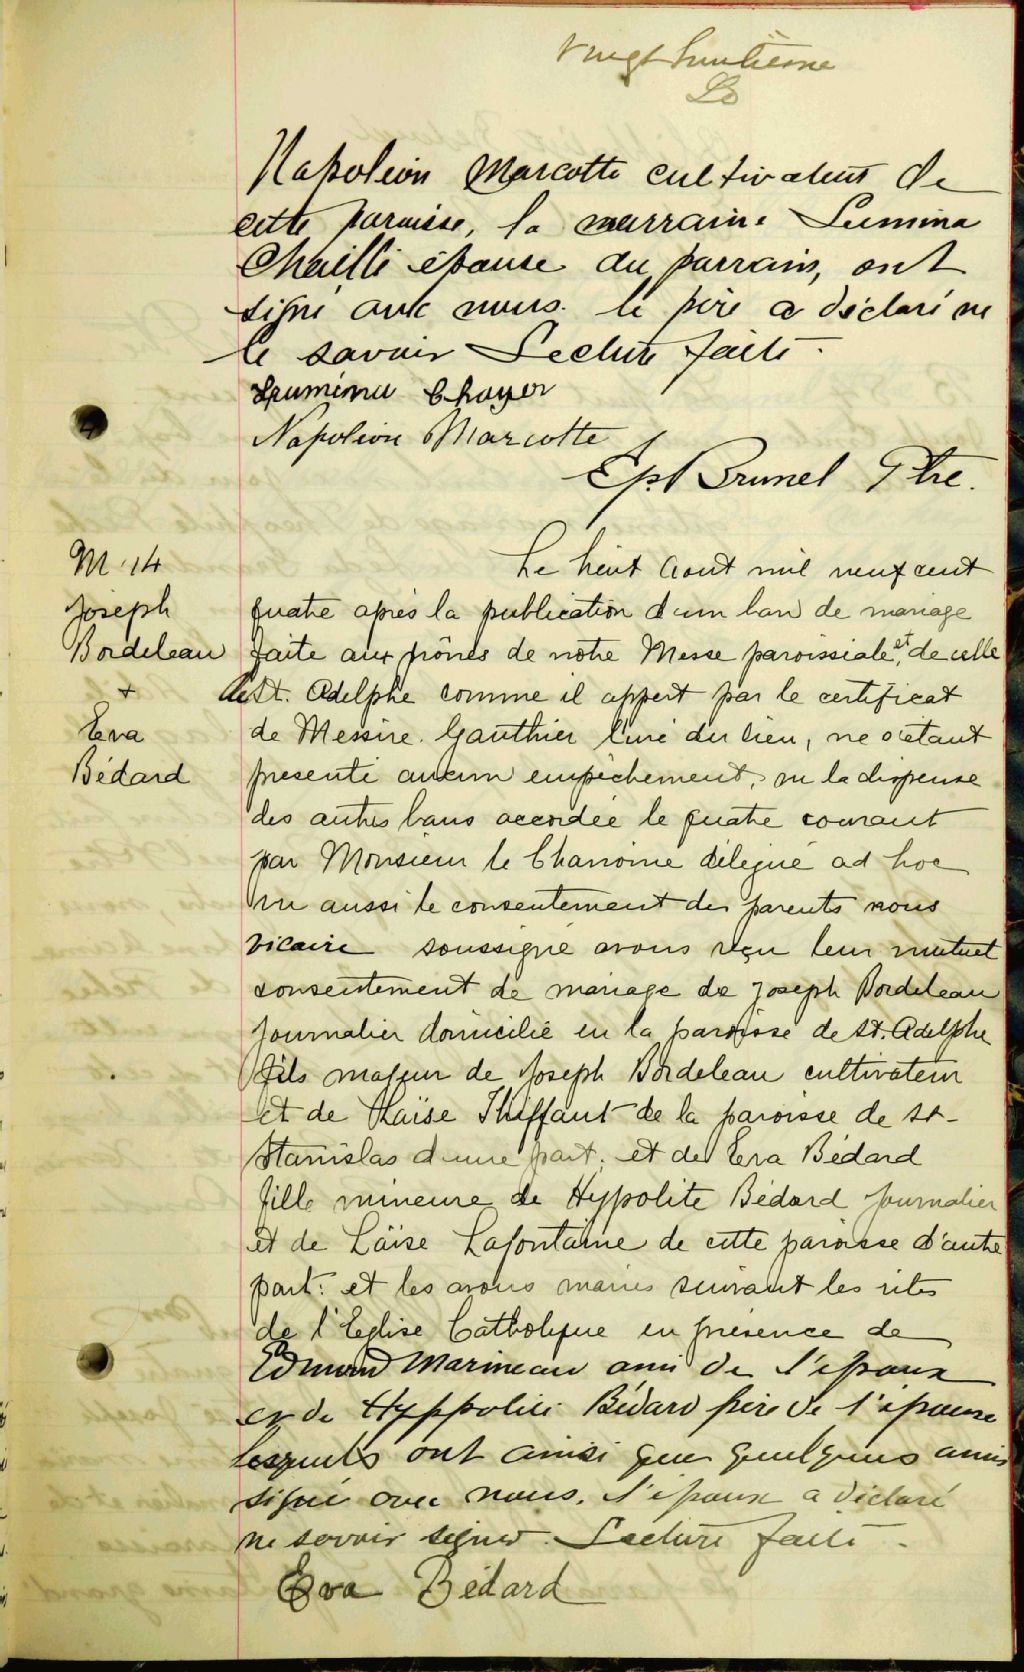 Vingt huitième
Napoléon Marcotte cultivateur de
cette paroisse, la marraine Lumina
Chaillé épouse du parrain, ont
signé avec nous. le père a déclaré ne
le savoir Lecture faite.
Napoleon Marcotte
Ep. Brunel Ptre.
M 14
Joseph
Bordeleau
+
Eva
Bédard
Le huit Aout mil neuf cent
quatre après la publication d'un ban de mariage
faite aux prônes de notre Messe paroissiale, et de celle
de St. Adelphe comme il appert par le certificat
de Messire Gauthier Curé du lieu, ne s'étant
présenté aucun empêchement, vu la dispense
des autres bans accordée le quatre courant
par Monsieur le Chanoine délégué ad hoc
vu aussi le consentement des parents nous
vicaire soussigné avons reçu leur mutuel
consentement de mariage de Joseph Bordeleau
journalier domicilié en la paroisse de St. Adelphe
fils majeur de Joseph Bordeleau cultivateur
et de Laïse Thiffaut de la paroisse de St-
Stanislas d'une part, et de Eva Bédard
fille mineure de Hyppolite Bédard Journalier
et de Laïse Lafontaine de cette paroisse d'autre
part: et les avons mariés suivant les rites
de l'Eglise Catholique en présence de
Edmond Marineau ami de l'époux
et de Hyppolite Bédard père de l'épouse
lesquels ont ainsi que quelques amis
signé avec nous. l'époux a déclaré
ne savoir signer. Lecture faite.
Eva Bédard